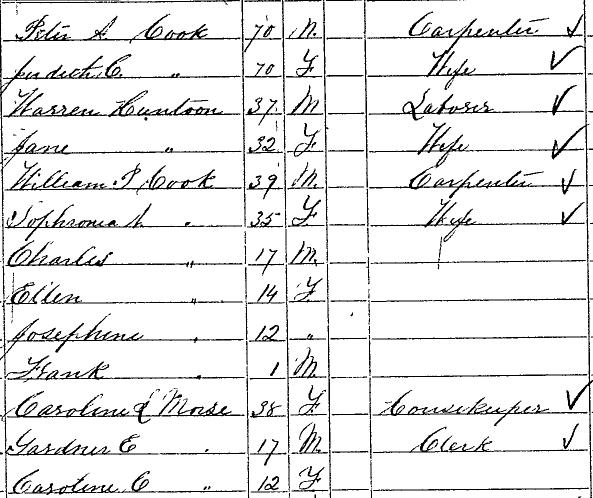 Peter A. Cook 70 M. Carpenter ✓
Judith C. " 70 F Wife ✓
Warren Huntoon 37. M Laborer ✓
Jane " 32 F Wife ✓
William P Cook 39 M. Carpenter ✓
Sophronia A " 35 F Wife ✓
Charles " 17 M.
Ellen " 14 F
Josephine " 12 "
Frank " 1 M
Caroline L Morse 38 F Housekeeper ✓
Gardner E " 17 M. Clerk ✓
Caroline C " 12 F